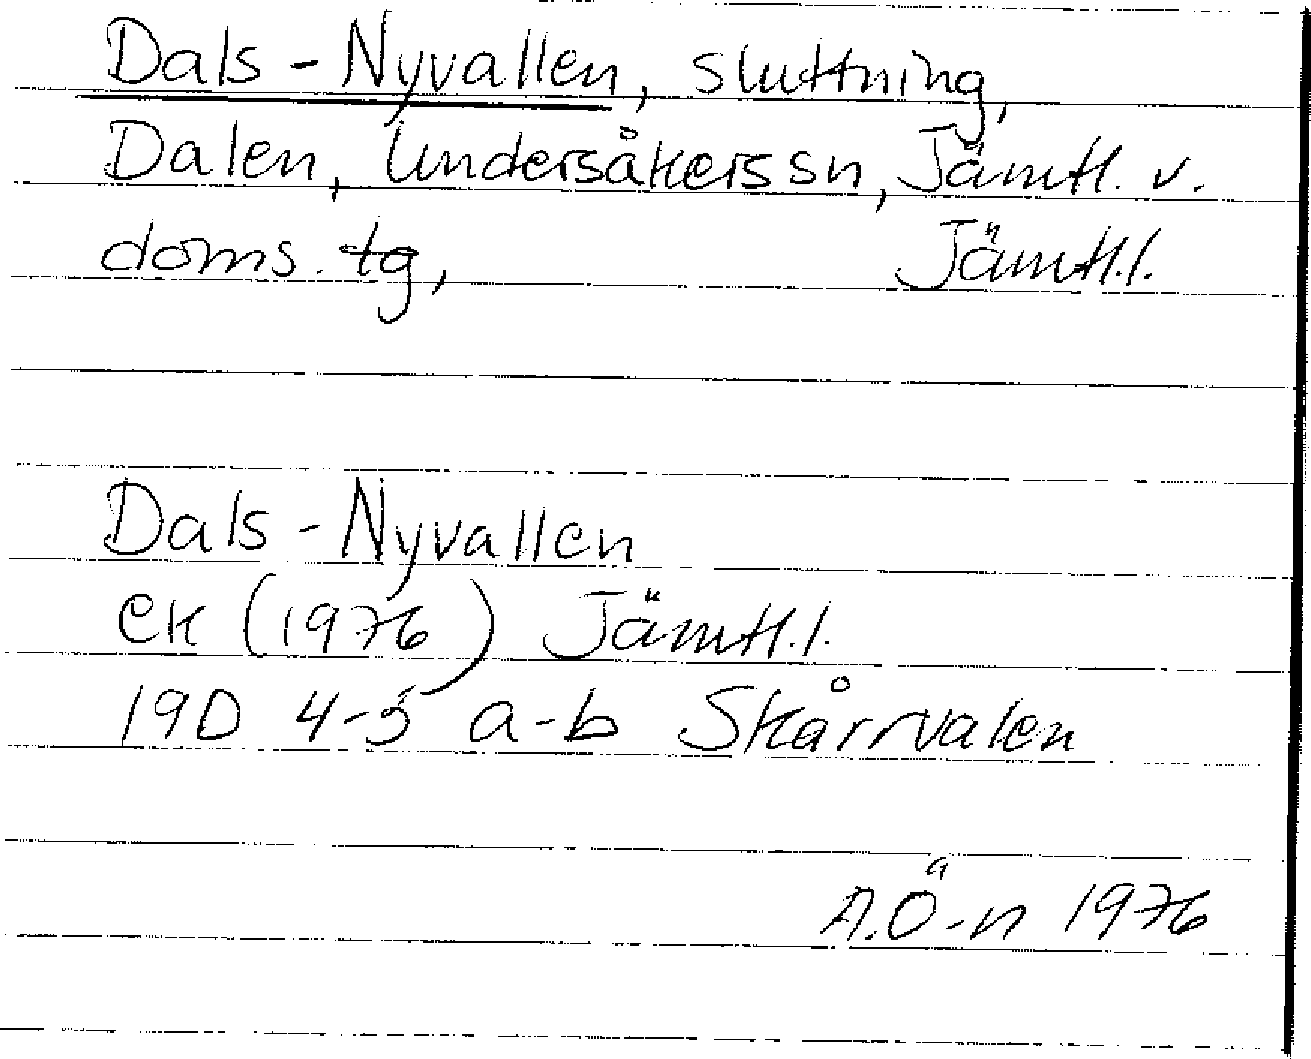 Dals - Nyvallen, sluttning,
Dalen, Undersåkers sn, Jämtl. v.
doms. tg, Jämtl.l.
Dals - Nyvallen
ek (1976) Jämtl.l.
19D 4-5 a-b Skårrvalen
A.Ö-n 1976